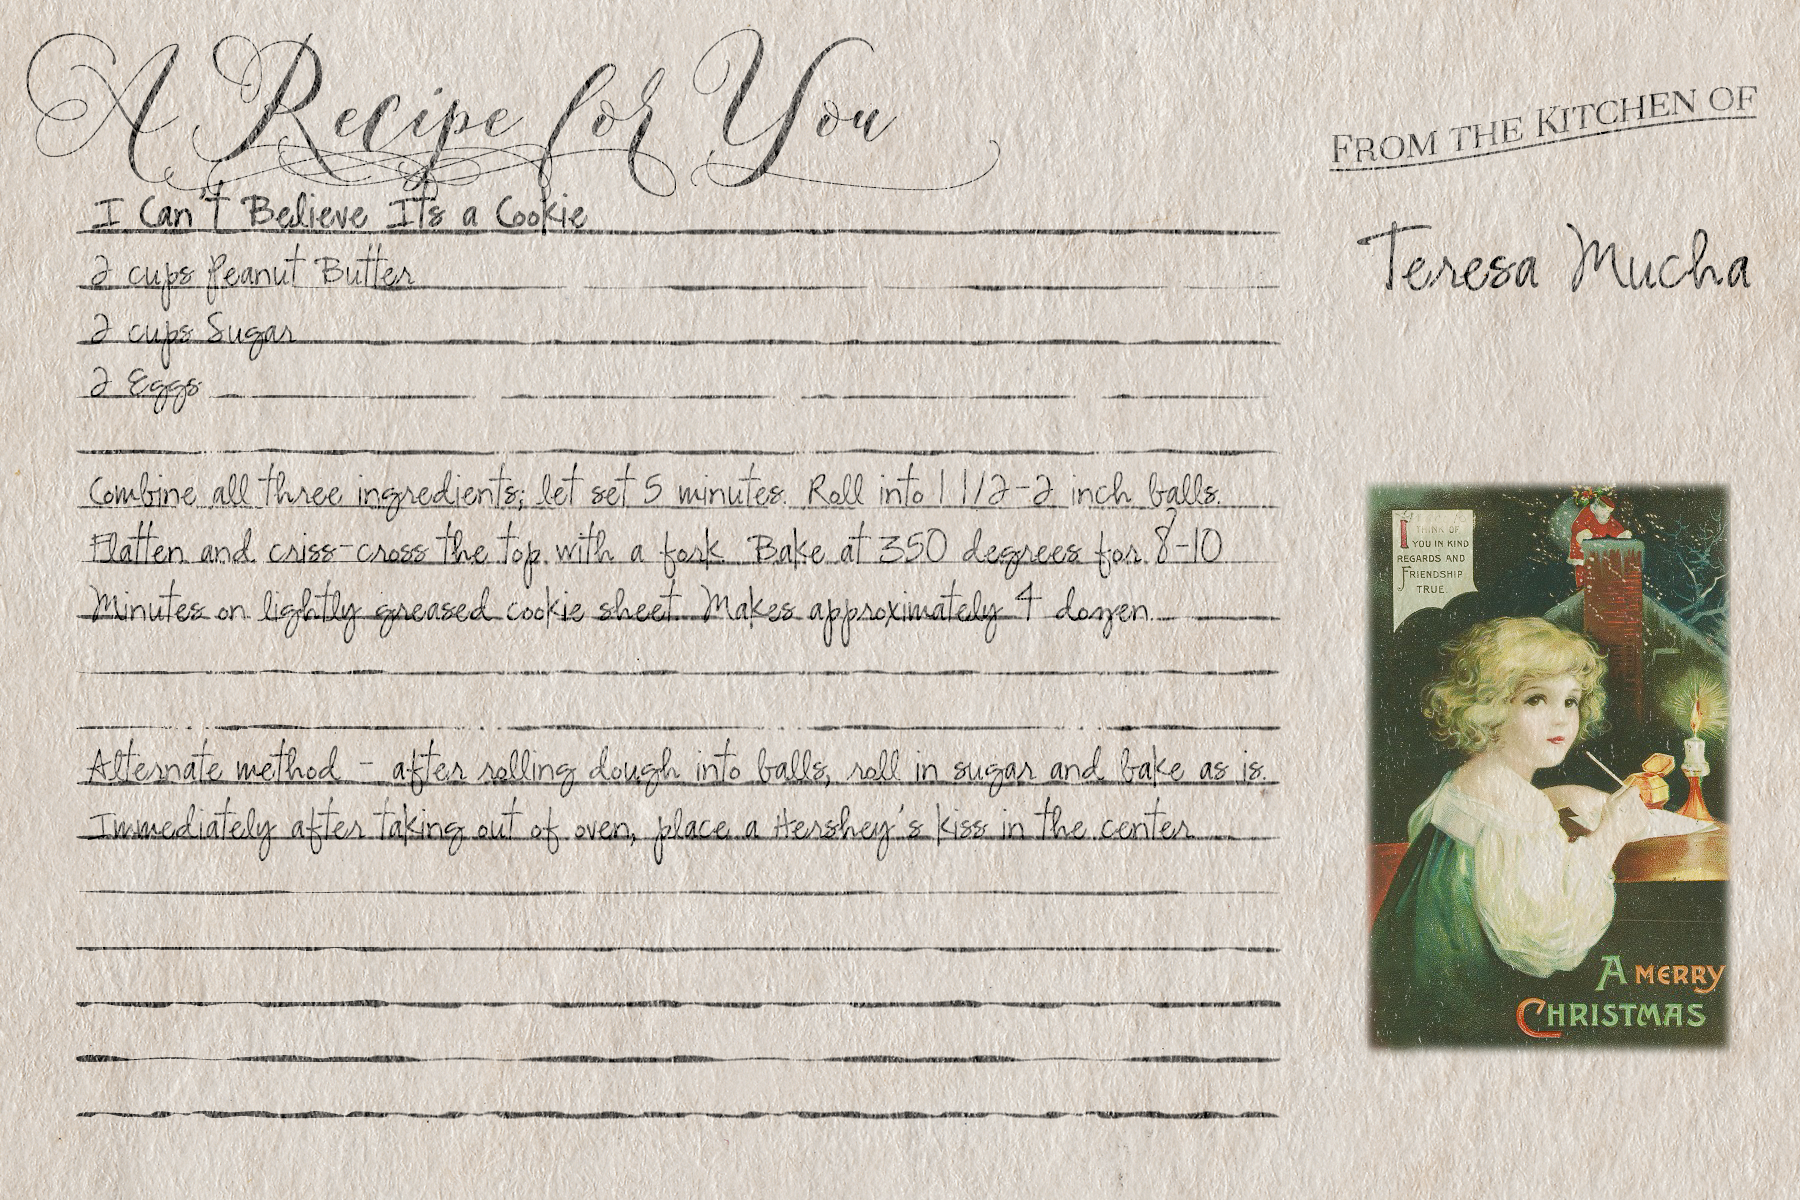 A Recipe for You
FROM THE KITCHEN OF
Teresa Mucha
I Can't Believe It's a Cookie
2 cups Peanut Butter
2 cups Sugar
2 Eggs
Combine all three ingredients; let set 5 minutes. Roll into 1 1/2-2 inch balls.
Flatten and criss-cross the top with a fork. Bake at 350 degrees for 8-10
Minutes on lightly greased cookie sheet. Makes approximately 4 dozen.
Alternate method - after rolling dough into balls, roll in sugar and bake as is.
Immediately after taking out of oven, place a Hershey's kiss in the center
I THINK OF
YOU IN KIND
REGARDS AND
FRIENDSHIP
TRUE.
A MERRY
CHRISTMAS